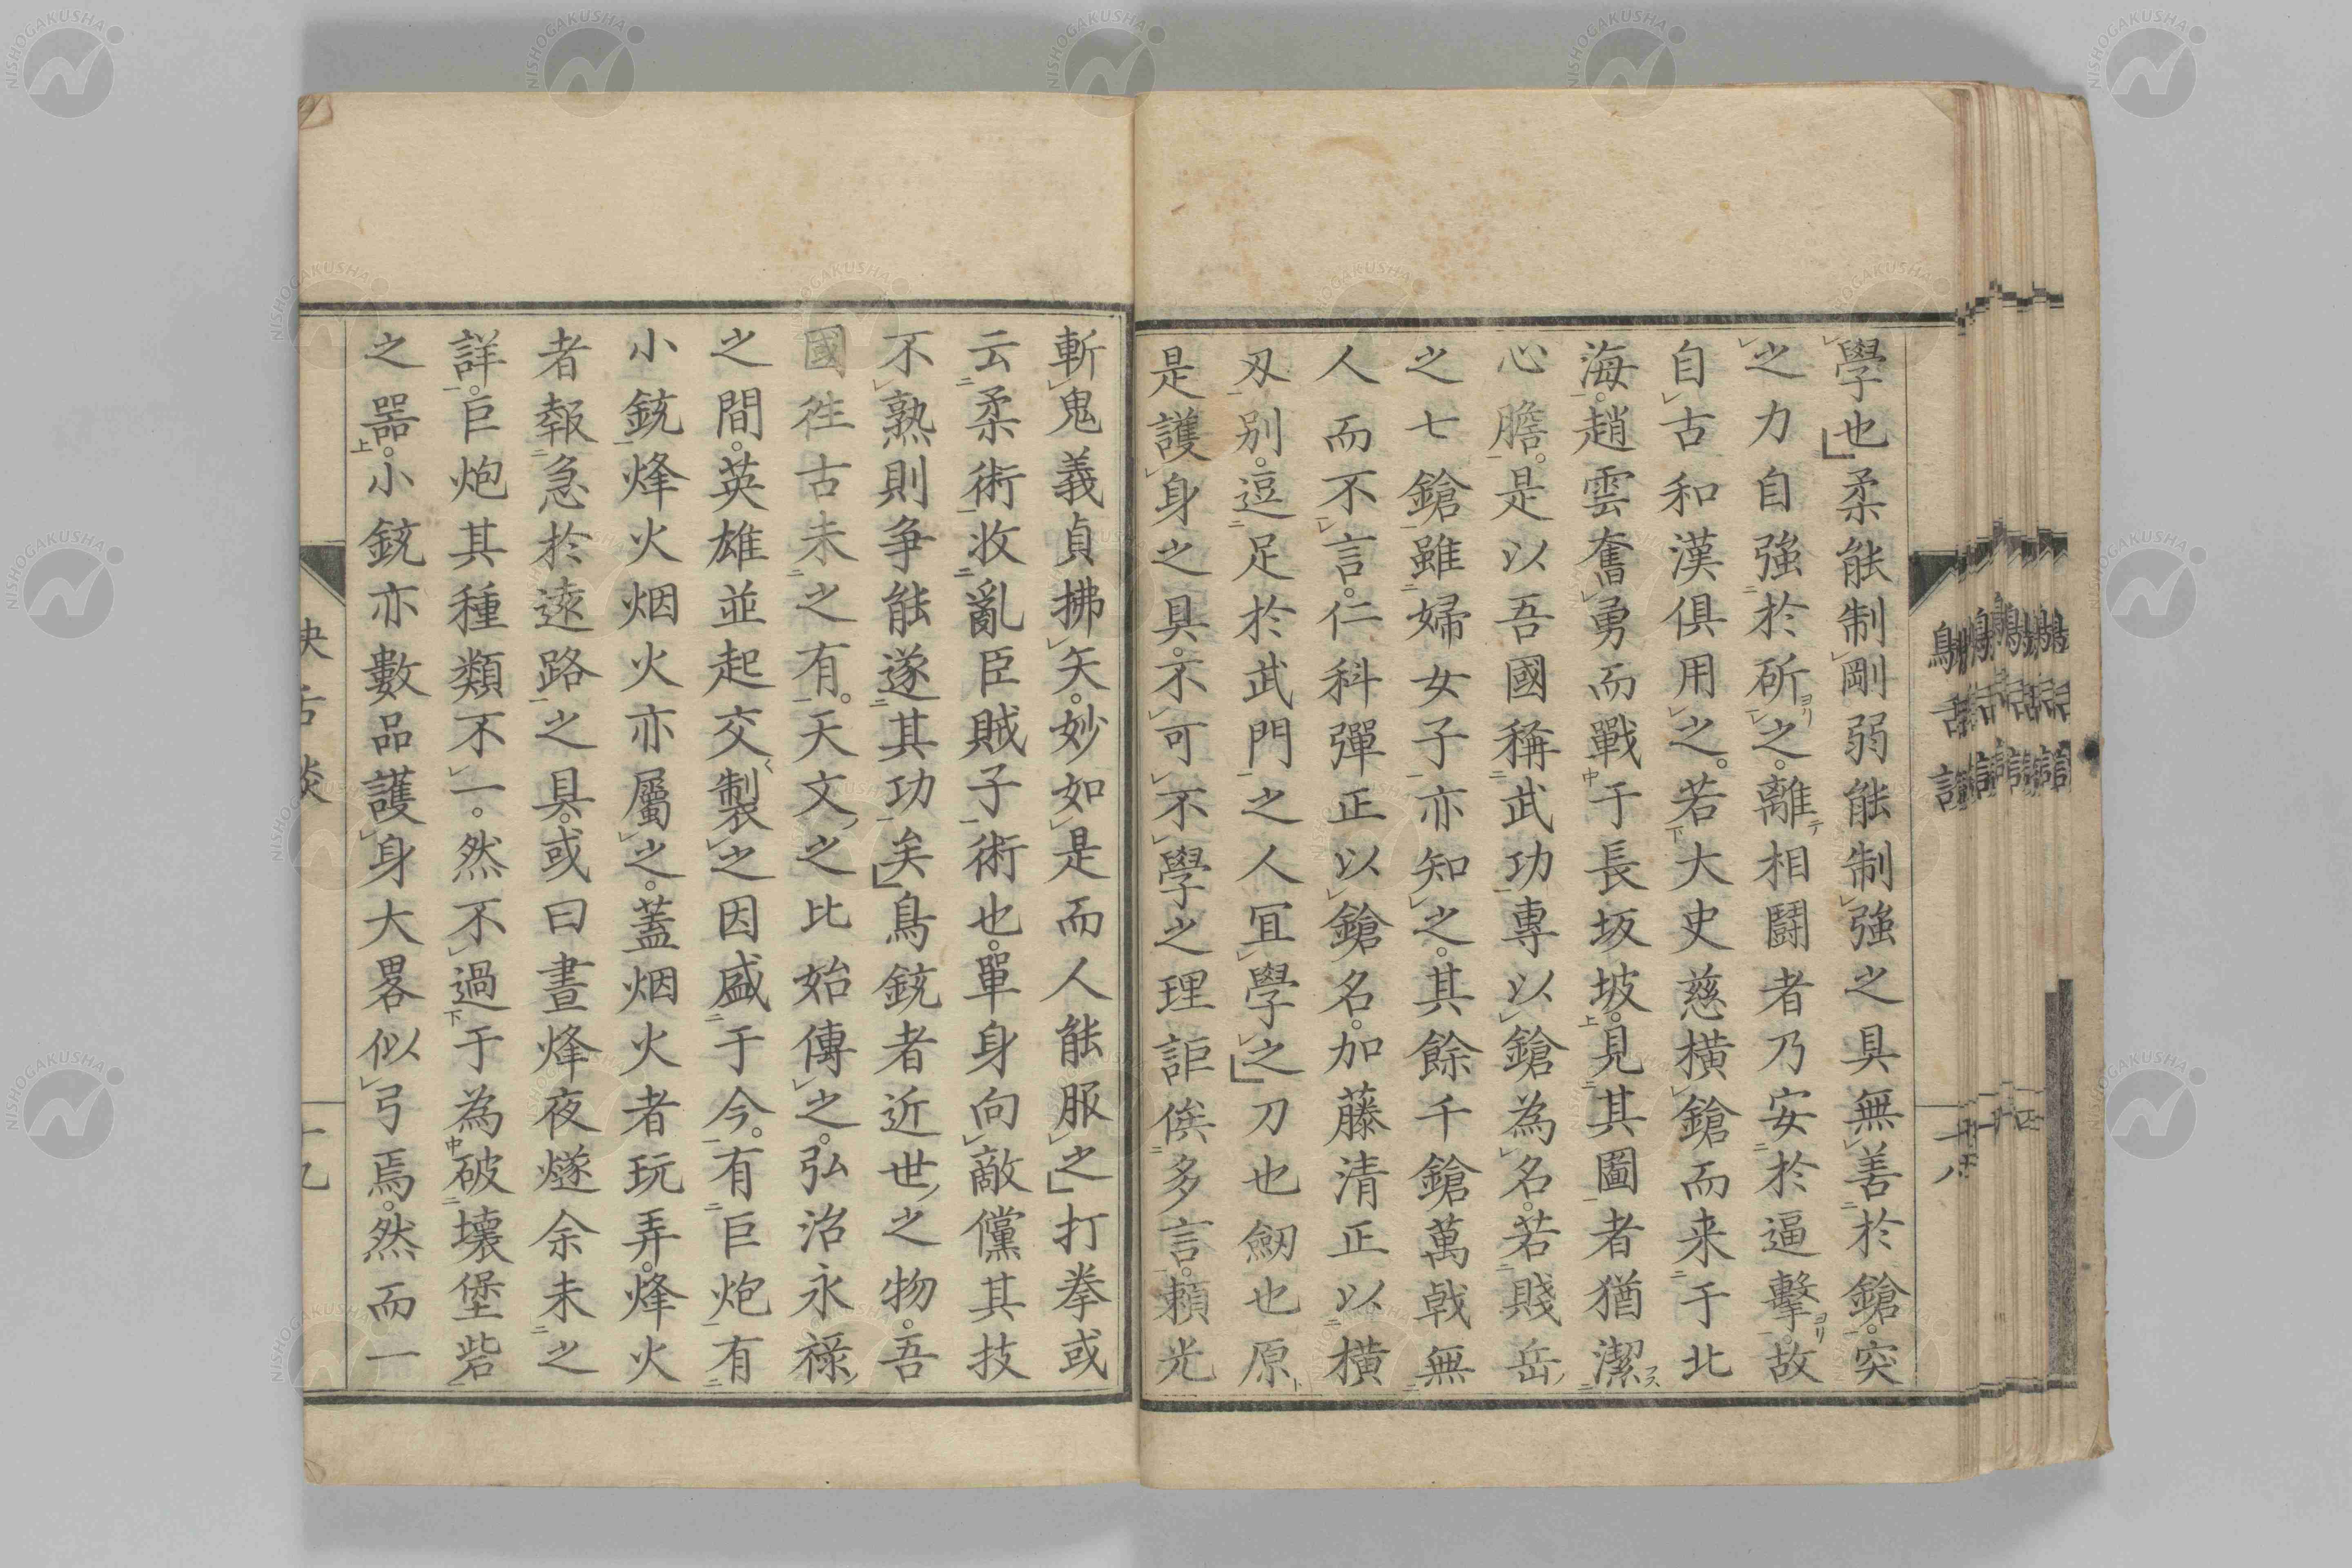 學也」柔能制剛弱能制強之具無善於鎗。突
之力自強於斫之。離相鬪者乃安於逼擊。故
自古和漢俱用之。若大史慈橫鎗而来于北
海。趙雲奮勇而戰于長坂坡。見其圖者猶潔
心膽。是以吾國稱武功專以鎗為名。若賤岳
之七鎗雖婦女子亦知之。其餘千鎗萬戟無
人而不言。仁科彈正以鎗名。加藤清正以橫
刄別。逗足於武門之人冝學之」刀也劒也原
是護身之具。不可不學之理詎俟多言。賴光
斬鬼義貞拂矢。妙如是而人能服之」打拳或
云柔術收亂臣賊子術也。單身向敵儻其技
不熟則爭能遂其功矣」鳥銃者近世之物。吾
國徃古未之有。天文之比始傳之。弘治永禄
之間。英雄並起交製之因盛于今。有巨炮有
小銃烽火烟火亦屬之。蓋烟火者玩弄。烽火
者報急於遠路之具。或曰晝烽夜燧余未之
詳。巨炮其種類不一。然不過于為破壞堡砦
之器。小銃亦數品護身大畧似弓焉。然而一
十八
NISHOGAKUSHA